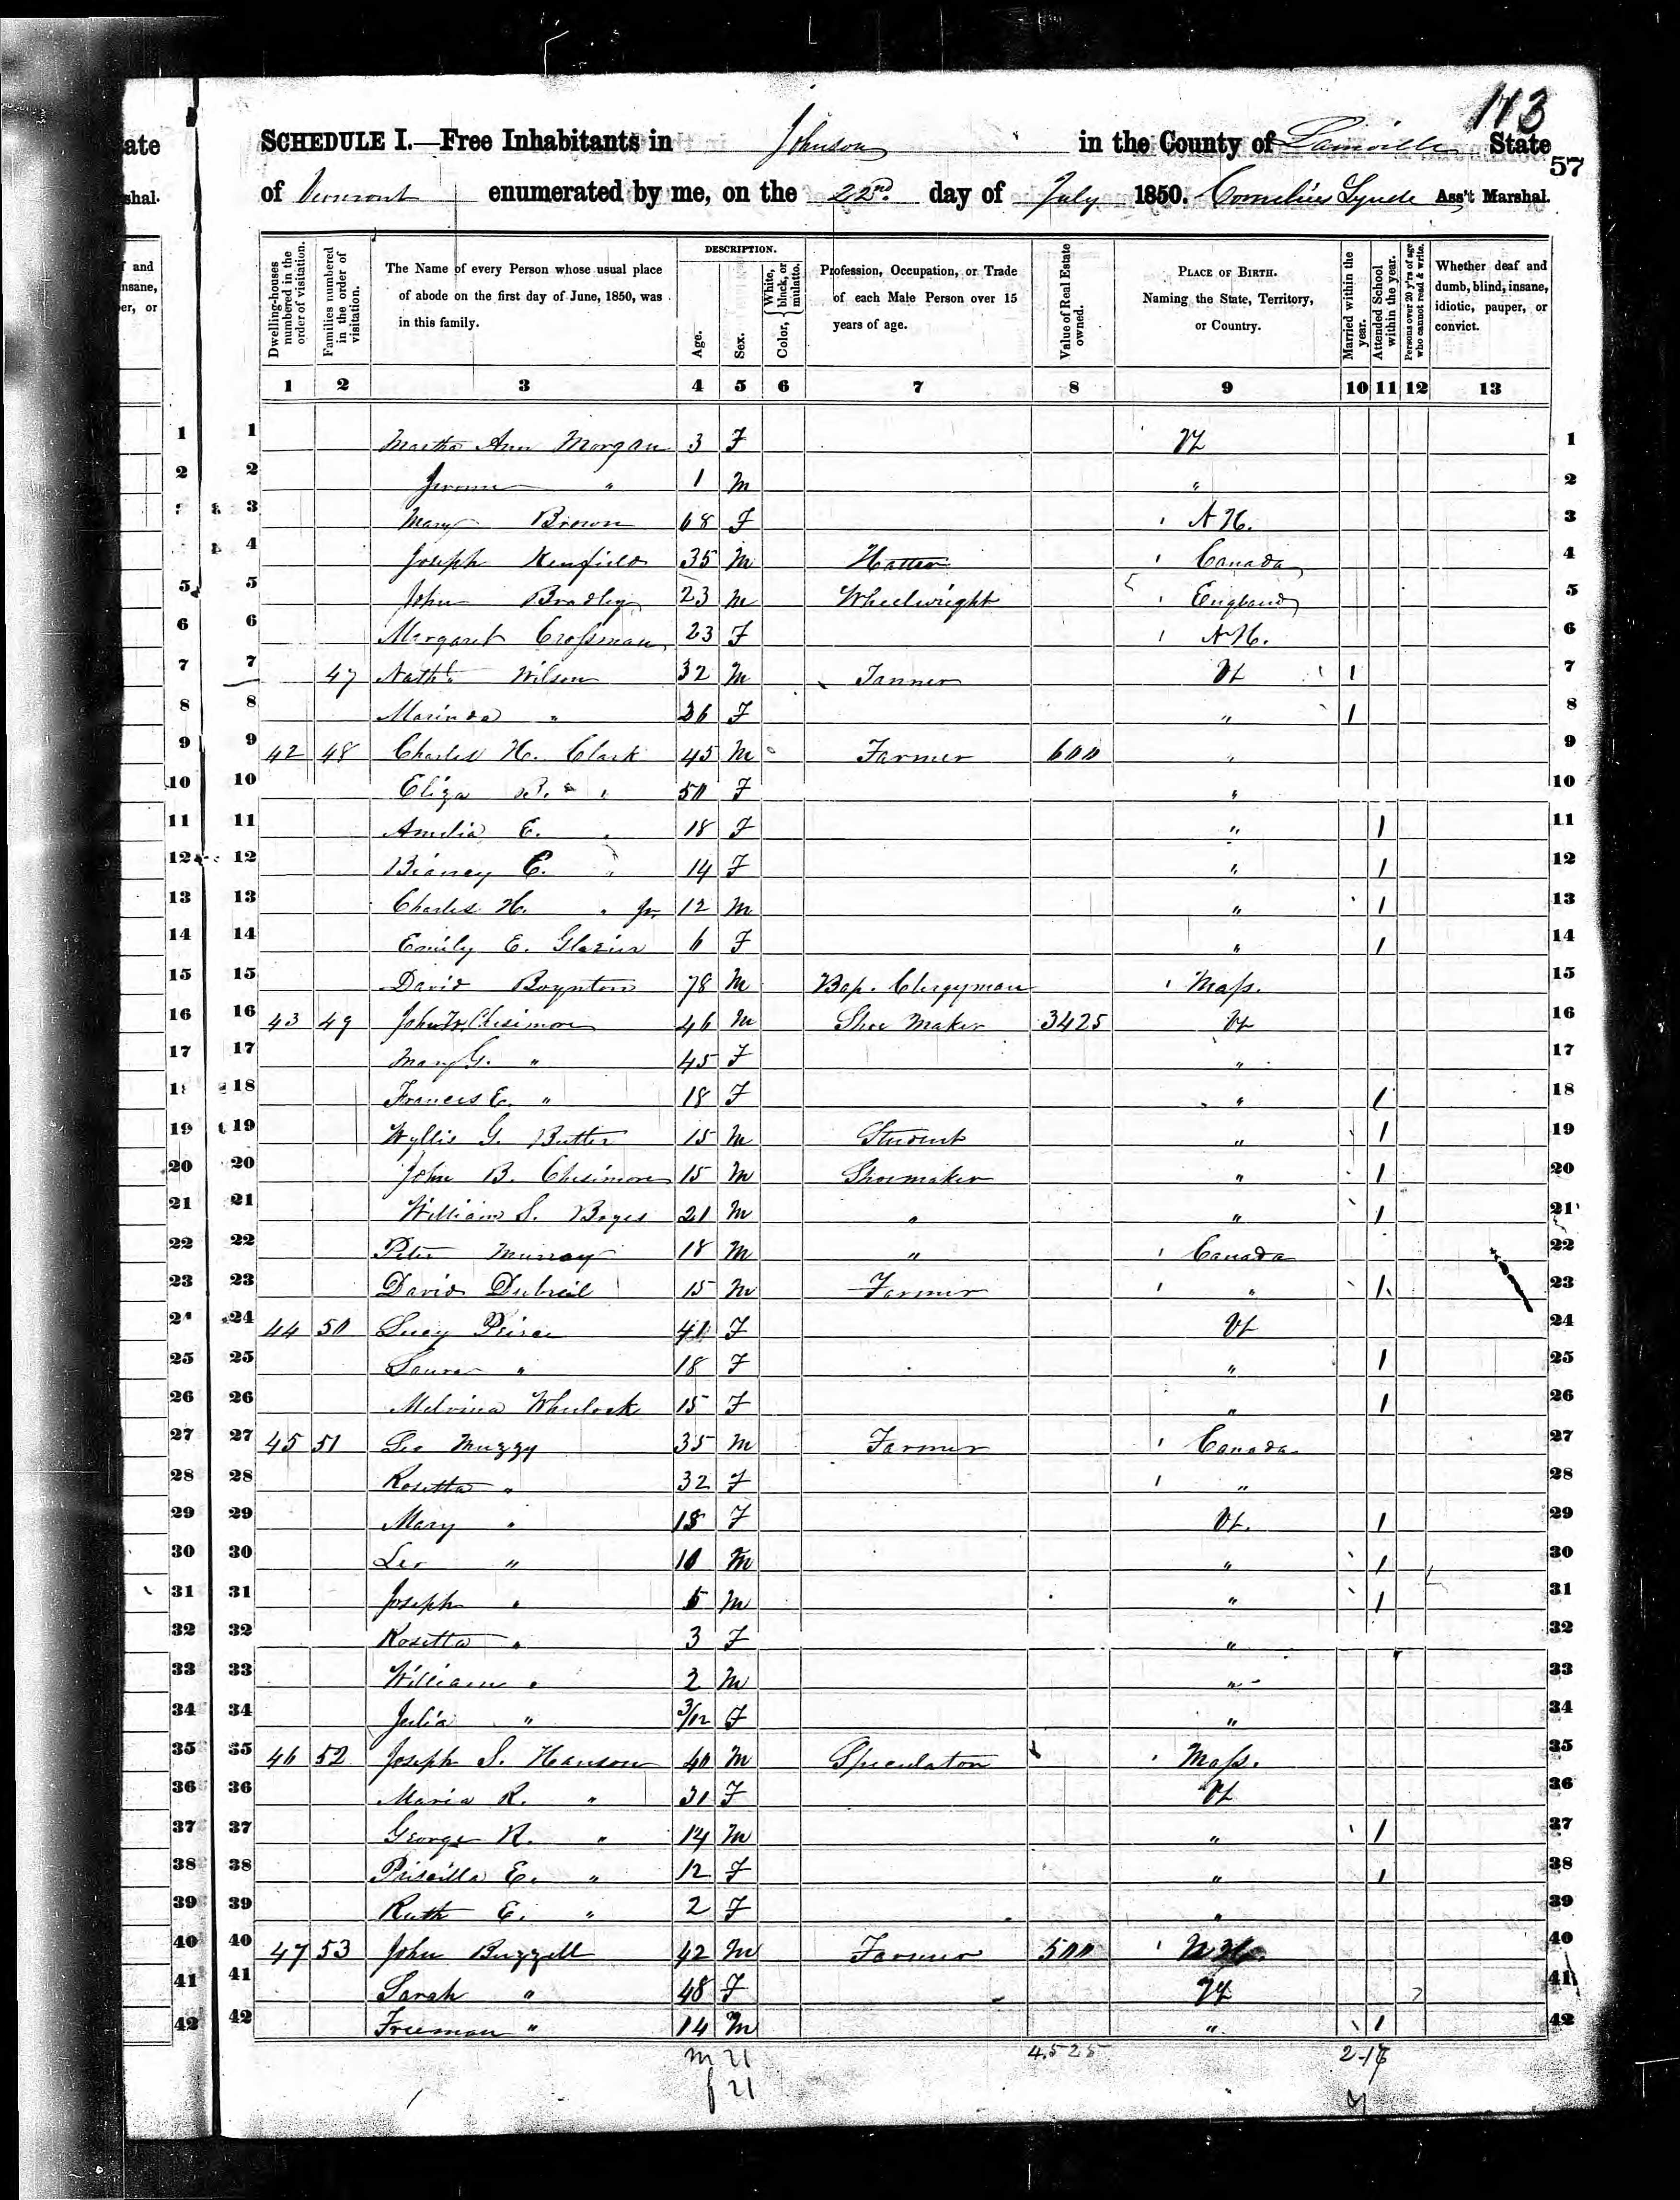 173
SCHEDULE I.—Free Inhabitants in Johnson in the County of Lamoille State
57
of Vermont enumerated by me, on the 22nd. day of July 1850. Cornelius Lynde Ass't Marshal.
Dwelling-houses numbered in the order of visitation.
Families numbered in the order of visitation.
The Name of every Person whose usual place of abode on the first day of June, 1850, was in this family.
DESCRIPTION.
Age.
Sex.
Color, { White, black, or mulatto.
Profession, Occupation, or Trade of each Male Person over 15 years of age.
Value of Real Estate owned.
PLACE OF BIRTH. Naming the State, Territory, or Country.
Married within the year.
Attended School within the year.
Persons over 20 y'rs of age who cannot read & write.
Whether deaf and dumb, blind, insane, idiotic, pauper, or convict.
1 2 3 4 5 6 7 8 9 10 11 12 13
1 Martha Ann Morgan 3 F Vt 1
2 Jerome " 1 M " 2
3 Mary Brown 68 F N H. 3
4 Joseph Kenfield 35 M Hatter Canada 4
5 John Bradley 23 M Wheelwright England 5
6 Margaret Crossman 23 F N H. 6
7 47 Nathl. Wilson 32 M Tanner Vt 1 7
8 Marinda " 26 F " 1 8
9 42 48 Charles H. Clark 45 M Farmer 600 " 9
10 Eliza B. " 50 F " 10
11 Amelia E. " 18 F " 1 11
12 E. " 14 F " 1 12
13 Charles H. " Jr. 12 M " 1 13
14 Emily E. Glazier 6 F " 1 14
15 David Boynton 78 M Bap. Clergyman Mass. 15
16 43 49 John Chesimore 46 M Shoe Maker 3425 Vt 16
17 Mary G. " 45 F " 17
18 Frances E. " 18 F " 1 18
19 Wyllis G. Butler 15 M Student " 1 19
20 John B. Chesimore 15 M Shoemaker " 1 20
21 William S. Boyes 21 M " " 1 21
22 Peter Murray 18 M " Canada 22
23 David Dubreil 15 M Farmer " 1 23
24 44 50 Lucy Peirce 41 F Vt 24
25 Laura " 18 F " 1 25
26 Melvina Wheelock 15 F " 1 26
27 45 51 Leo Muzzy 35 M Farmer Canada 27
28 Rosetta " 32 F " 28
29 Mary " 13 F Vt. 1 29
30 Leo " 10 M " 1 30
31 Joseph " 5 M " 1 31
32 Rosetta " 3 F " 32
33 William " 2 M " 33
34 Julia " 3/12 F " 34
35 46 52 Joseph S. Hanson 40 M Speculator Mass. 35
36 Maria R. " 31 F Vt 36
37 George R. " 14 M " 1 37
38 Priscilla E. " 12 F " 1 38
39 Ruth E. " 2 F " 39
40 47 53 John Buzzell 42 M Farmer 500 N H. 40
41 Sarah " 48 F Vt 41
42 Freeman " 14 M " 1 42
m 21 4.525
f 21